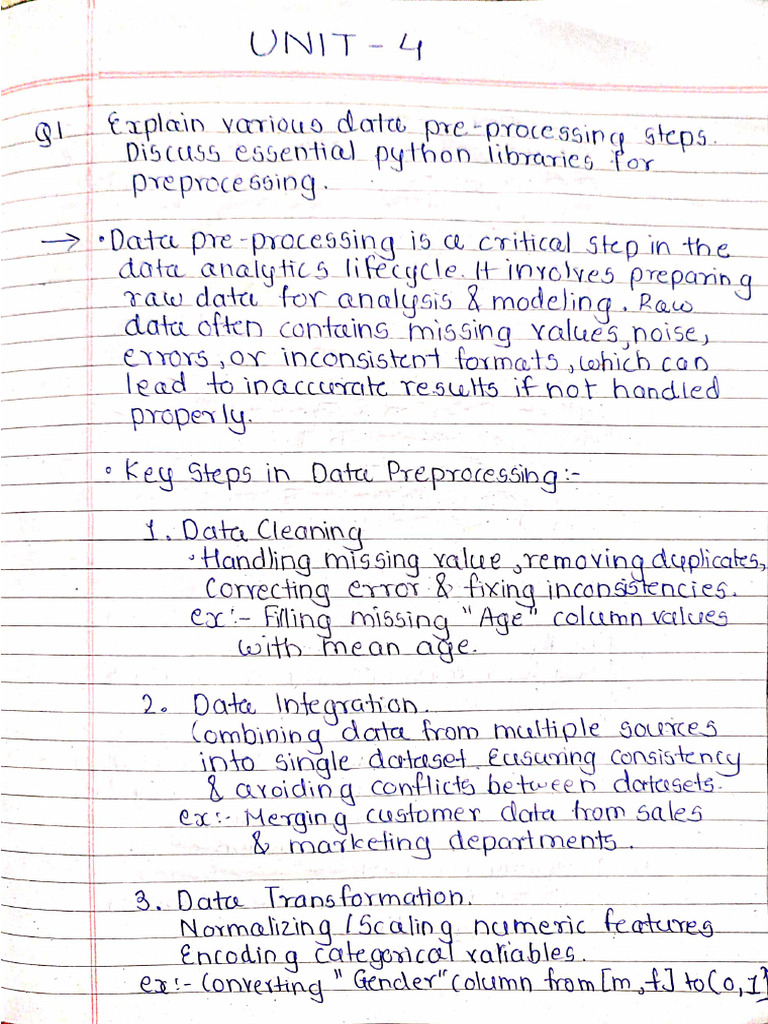 UNIT - 4
Q1 Explain various data pre-processing steps.
Discuss essential python libraries for
preprocessing.
→ • Data pre-processing is a critical step in the
data analytics lifecycle. It involves preparing
raw data for analysis & modeling. Raw
data often contains missing values, noise,
errors, or inconsistent formats, which can
lead to inaccurate results if not handled
properly.
• Key Steps in Data Preprocessing:-
1. Data Cleaning
• Handling missing value, removing duplicates,
Correcting error & fixing inconsistencies.
ex:- Filling missing "Age" column values
with mean age.
2. Data Integration.
Combining data from multiple sources
into single dataset. Ensuring consistency
& avoiding conflicts between datasets.
ex:- Merging customer data from sales
& marketing departments.
3. Data Transformation.
Normalizing / Scaling numeric features
Encoding categorical variables.
ex:- Converting "Gender" column from [m, f] to (0, 1]